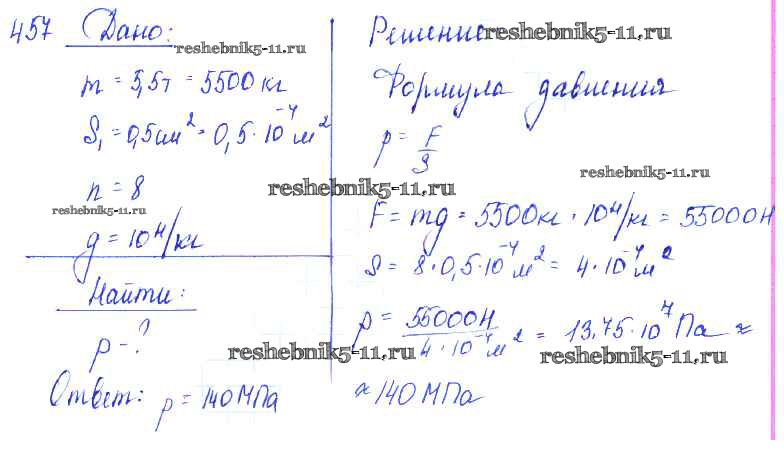 457 Дано:
reshebnik5-11.ru
m = 5,5т = 5500 кг
S₁ = 0,5см² = 0,5·10⁻⁴м²
n = 8
reshebnik5-11.ru
g = 10 Н/кг
Найти:
p - ?
Ответ: p = 140 МПа
Решение
reshebnik5-11.ru
Формула давления
p = F/S
reshebnik5-11.ru
reshebnik5-11.ru
F = mg = 5500кг · 10 Н/кг = 55000Н
S = 8·0,5·10⁻⁴м² = 4·10⁻⁴м²
p = 55000Н/4·10⁻⁴м² = 13,75·10⁷Па ≈
reshebnik5-11.ru
reshebnik5-11.ru
≈ 140 МПа